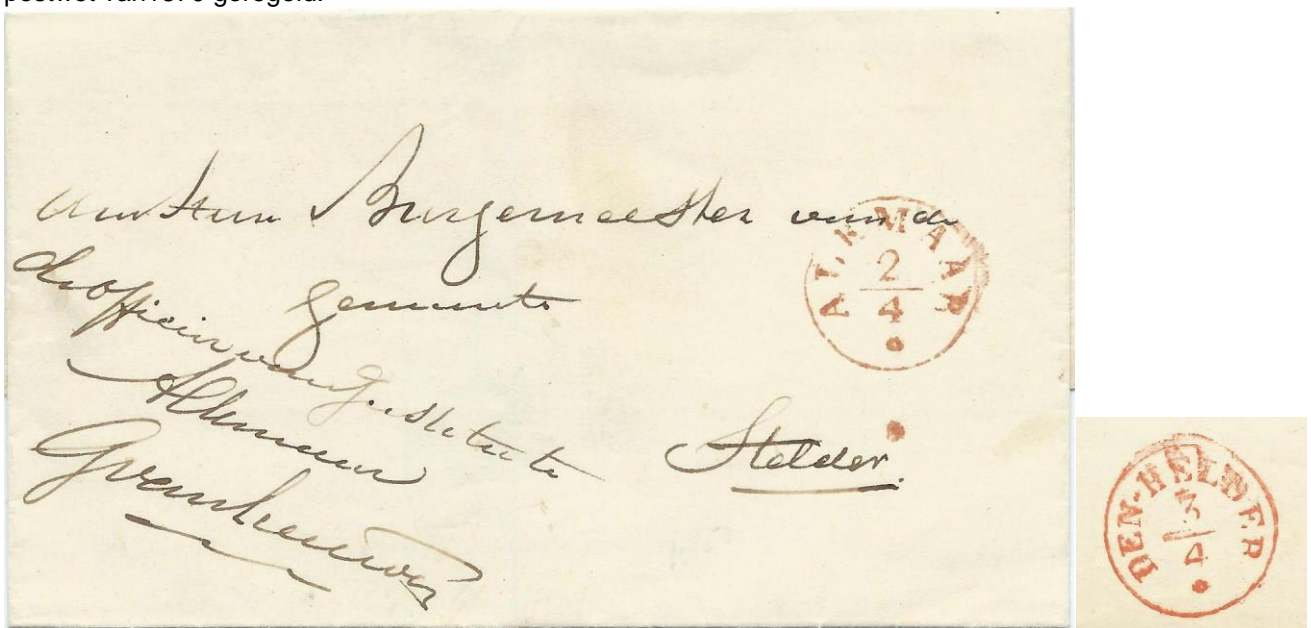 Burgemeester van de
Gemeente
de officier van Justitie te
Alkmaar
Helder.
ALKMAAR
2
4
DEN-HELDER
3
4